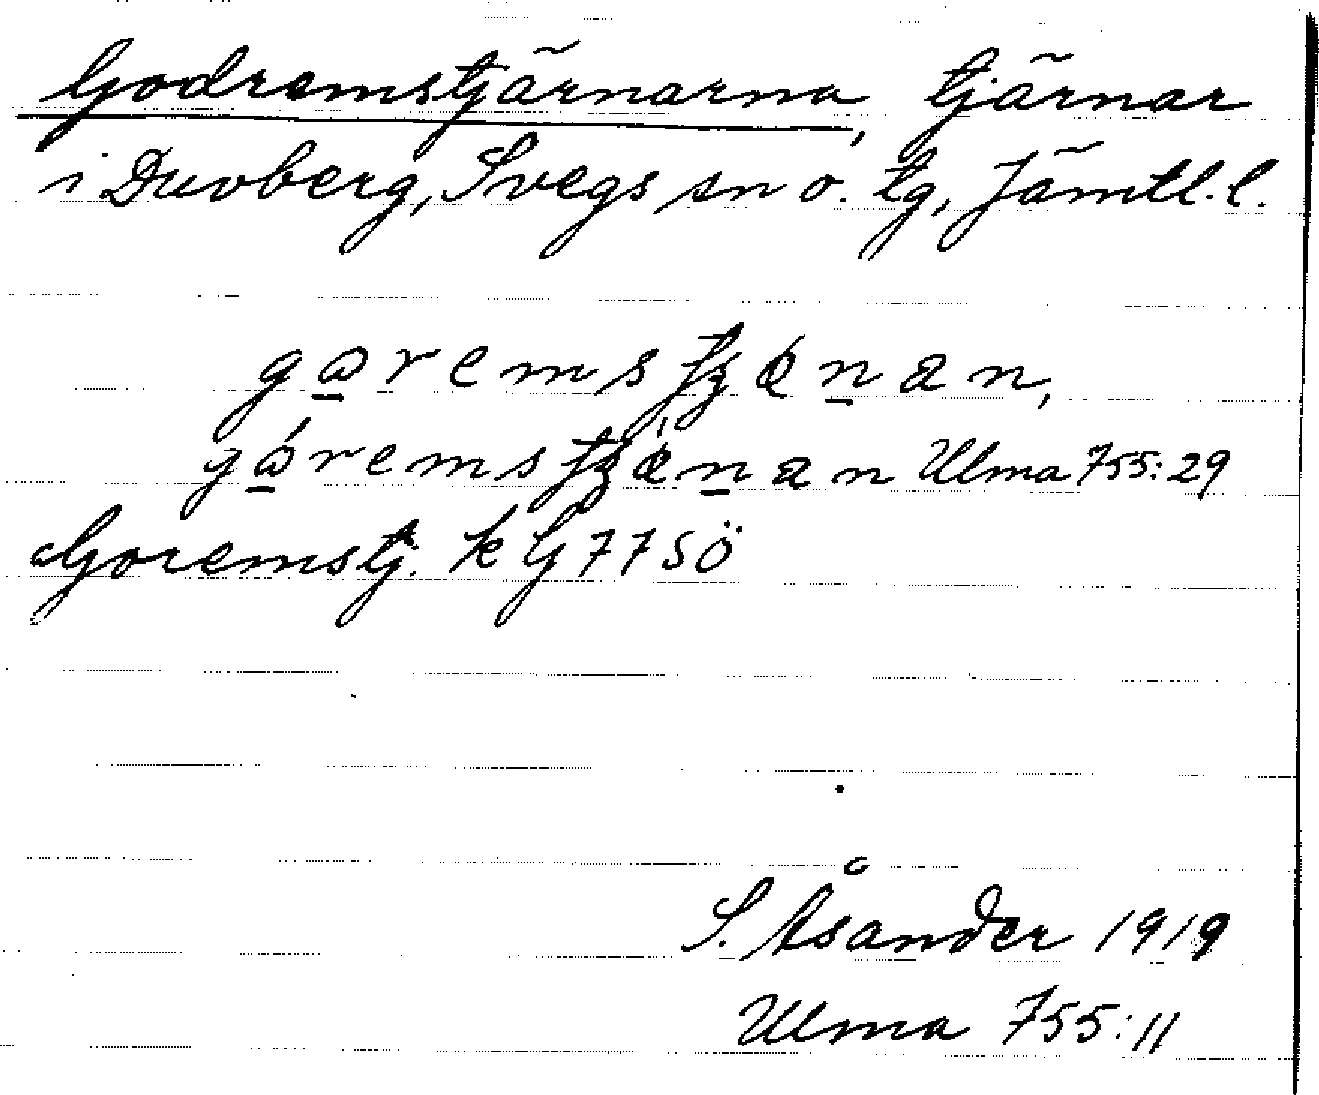 Godremstjärnarna, tjärnar
i Duvberg, Svegs sn o. tg, Jämtl. l.
garemstjænan,
gáremstjænan Ulma 755:29
Goremstj. k G 77 SÖ
S. Åsander 1919
Ulma 755:11